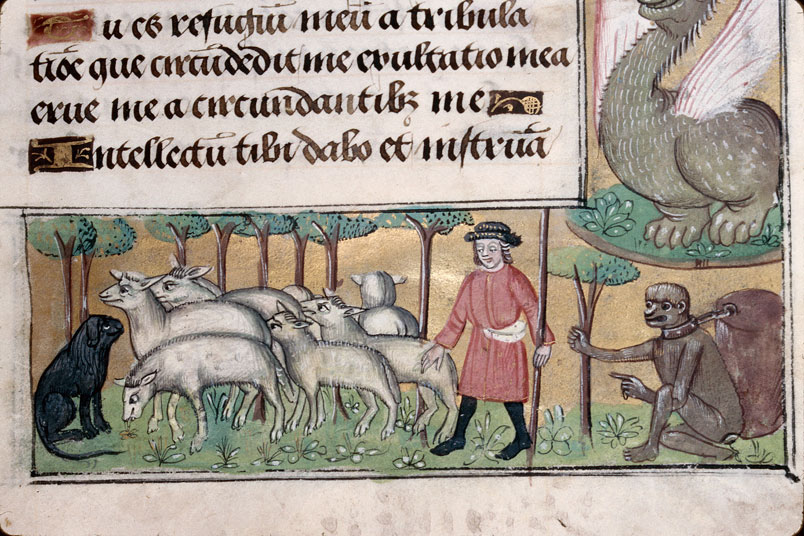 Tu es refugiū meū a tribula
tiōe que circūdedit me exultatio mea
erue me a circundantibꝫ me
Intellectū tibi dabo et instruā